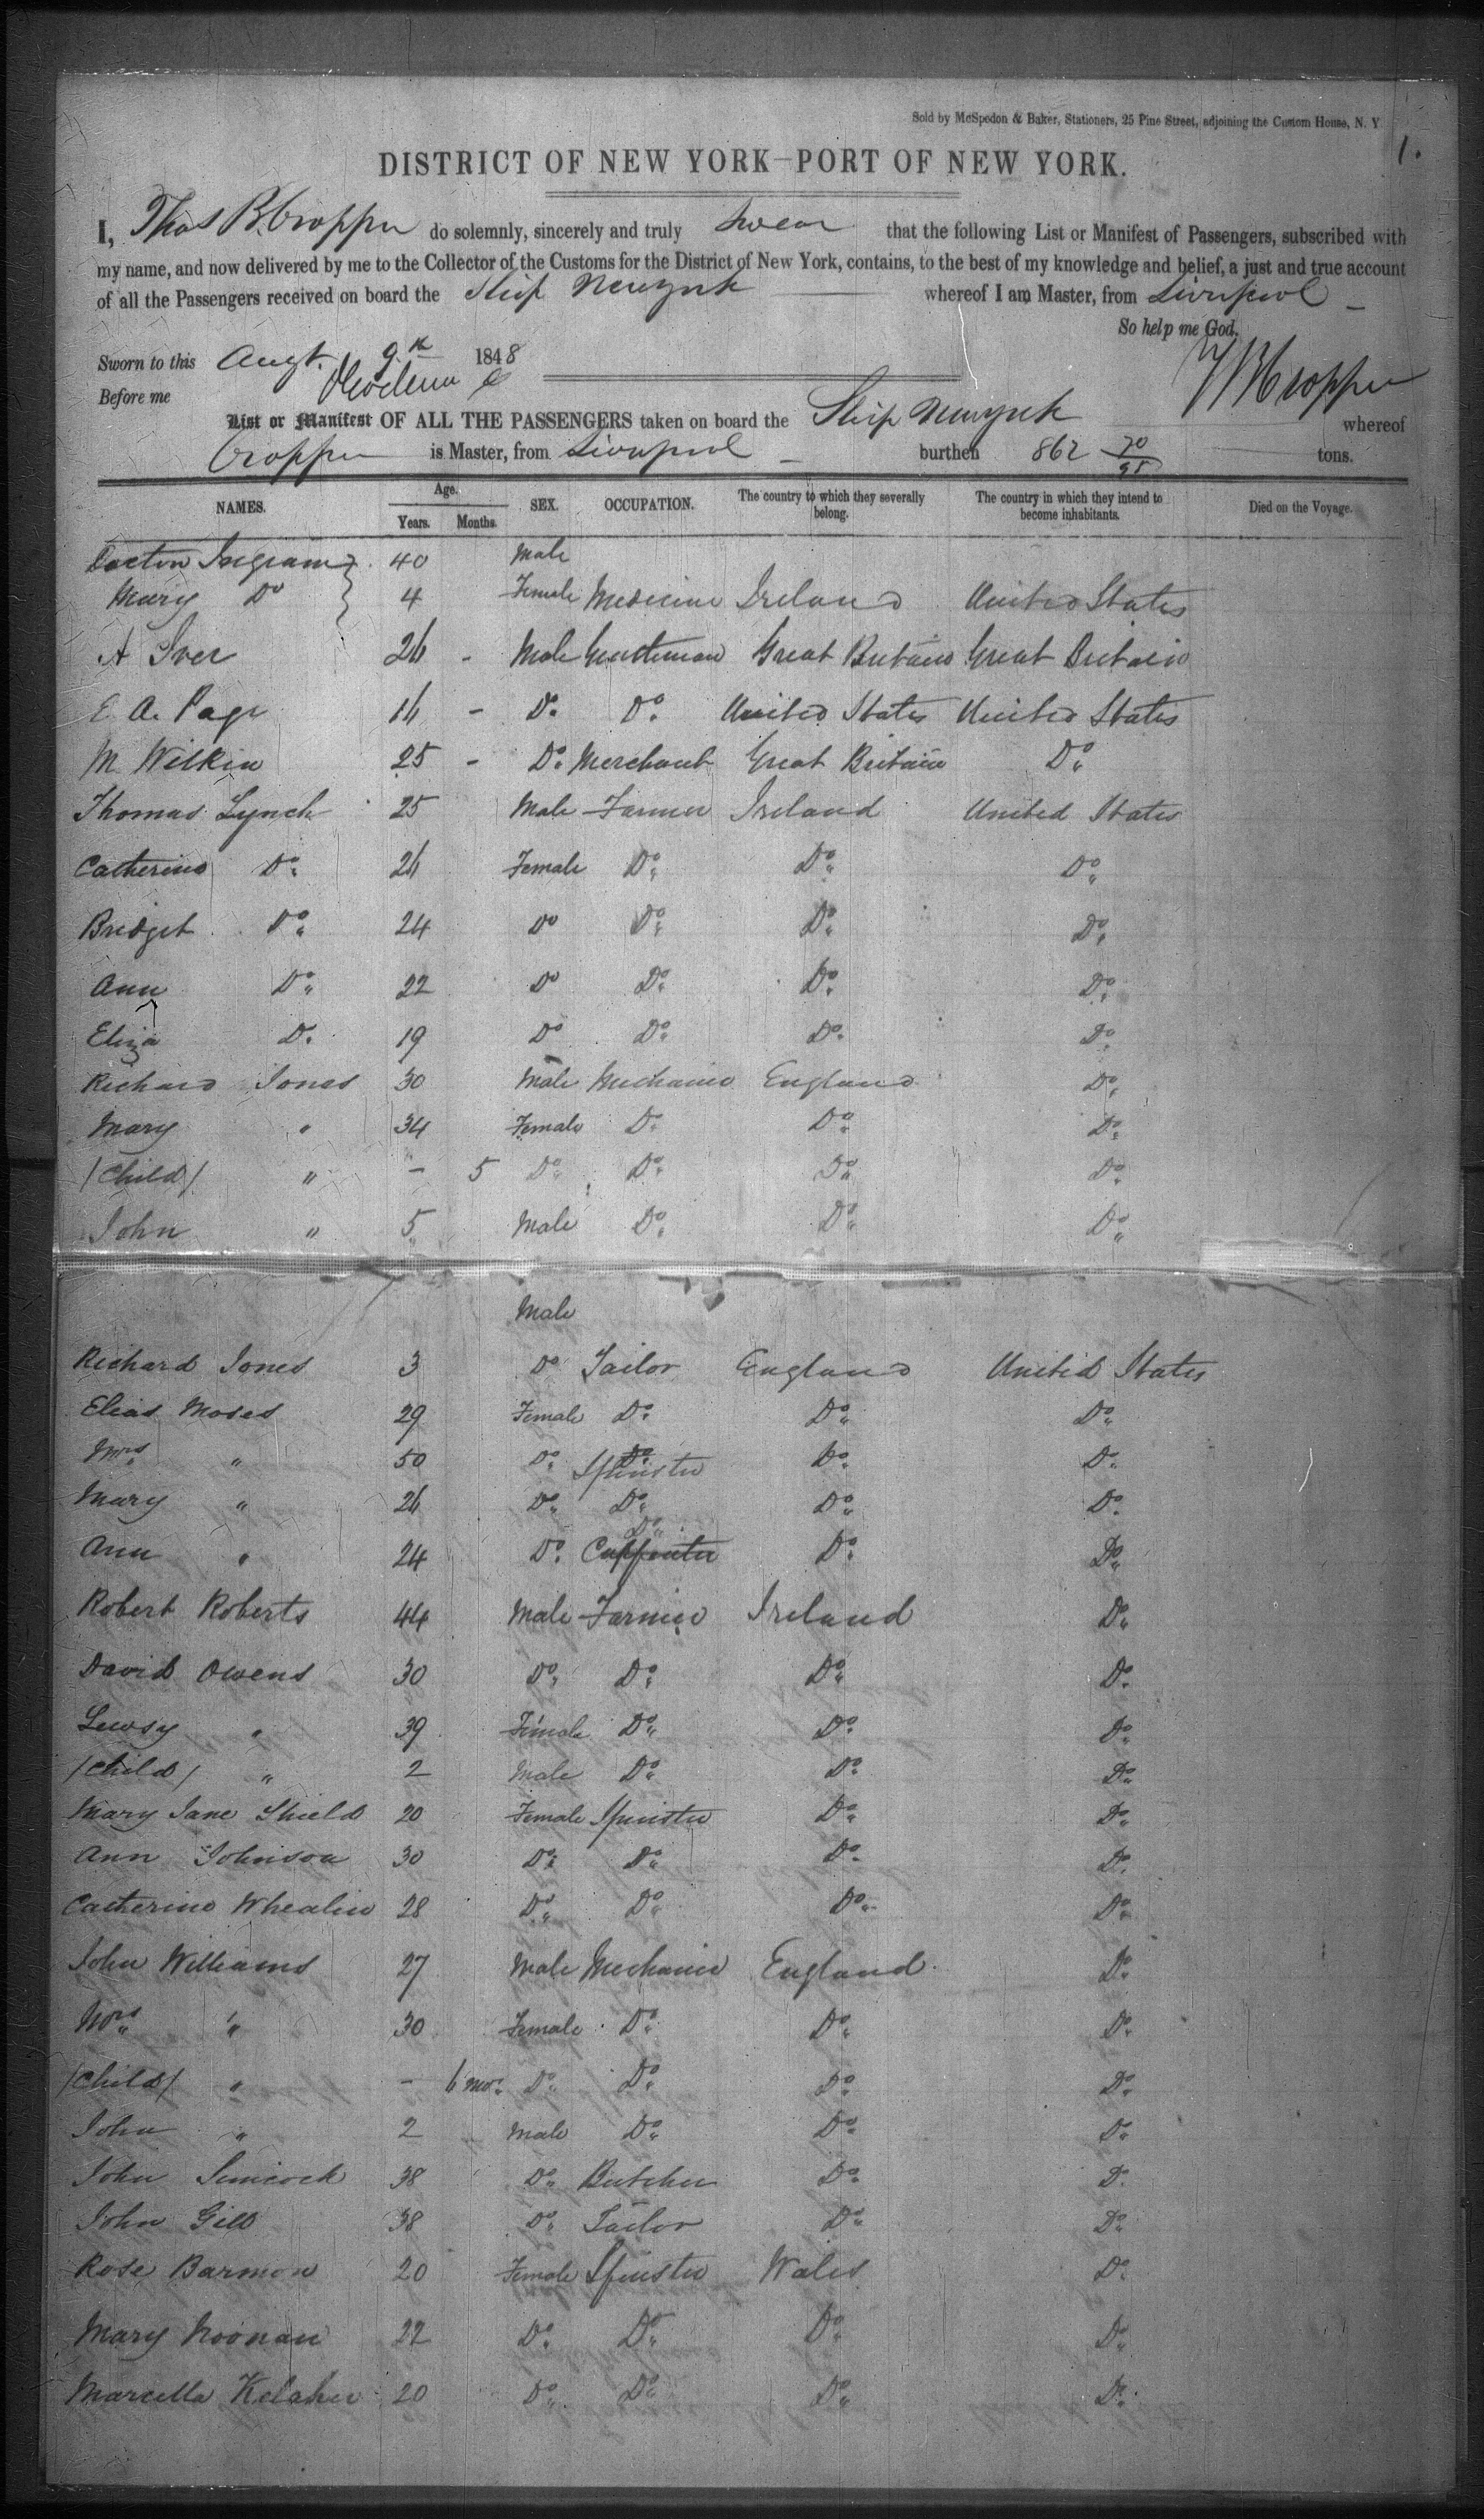 Sold by McSpedon & Baker, Stationers, 25 Pine Street, adjoining the Custom House, N. Y
1.
DISTRICT OF NEW YORK—PORT OF NEW YORK.
I, Thos B. Cropper do solemnly, sincerely and truly swear that the following List or Manifest of Passengers, subscribed with
my name, and now delivered by me to the Collector of the Customs for the District of New York, contains, to the best of my knowledge and belief, a just and true account
of all the Passengers received on board the Ship Newyork whereof I am Master, from Liverpool
So help me God.
Sworn to this Augt. 9th 1848
T B Cropper
Before me
List or Manifest OF ALL THE PASSENGERS taken on board the Ship Newyork whereof
Cropper is Master, from Liverpool burthen 862 70/95 tons.
NAMES. Age. Years. Months. SEX. OCCUPATION. The country to which they severally belong. The country in which they intend to become inhabitants. Died on the Voyage.
Doctor Ingram 40 Male
Mary Do 4 Female Medicine Ireland United States
A Iver 26 - Male Gentleman Great Britain Great Britain
E. A. Page 16 - Do. Do. United States United States
M. Wilkin 25 - Do. Merchant Great Britain Do.
Thomas Lynch 25 Male Farmer Ireland United States
Catherine Do. 26 Female Do. Do. Do.
Bridget Do. 24 Do Do. Do. Do.
Ann Do. 22 Do Do. Do. Do.
Eliza Do. 19 Do Do. Do. Do.
Richard Jones 30 Male Mechanic England Do.
Mary " 34 Female Do. Do. Do.
/Child/ " - 5 Do. Do. Do. Do.
John " 5 Male Do. Do. Do.
Male
Richard Jones 3 Do Tailor England United States
Elias Moses 29 Female Do. Do. Do.
Mrs " 50 Do. Do. Spinster Do. Do.
Mary " 26 Do. Do. Do. Do.
Do.
Ann " 24 Do. Carpenter Do. Do.
Robert Roberts 44 Male Farmer Ireland Do.
David Owens 30 Do. Do. Do. Do.
Lewsy " 39 Female Do. Do. Do.
/Child/ " 2 Male Do. Do. Do.
Mary Jane Shield 20 Female Spinster Do. Do.
Ann Johnson 30 Do. Do. Do. Do.
Catherine Whealin 28 Do. Do. Do. Do.
John Williams 27 Male Mechanic England Do.
Mrs " 30 Female Do. Do. Do.
/Child/ " - 6 mos. Do. Do. Do. Do.
John " 2 Male Do. Do. Do.
John Simcock 38 Do. Butcher Do. Do.
John Gill 38 Do. Tailor Do. Do.
Rose Barmon 20 Female Spinster Wales Do.
Mary Noonan 22 Do. Do. Do. Do.
Marcella Kelaher 20 Do. Do. Do. Do.